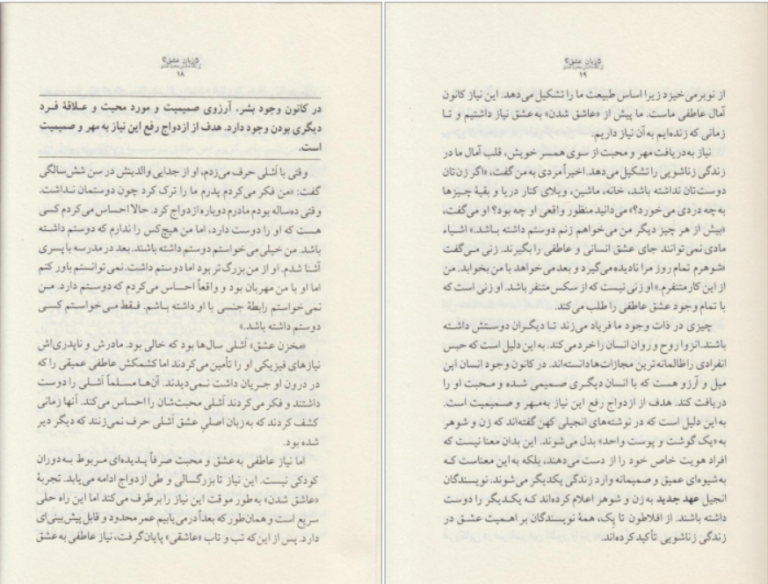 ۵ زبان عشق؟
۱۸
در کانون وجود بشر، آرزوی صمیمیت و مورد محبت و علاقهٔ فرد
دیگری بودن وجود دارد. هدف از ازدواج رفع این نیاز به مهر و صمیمیت
است.
وقتی با آشلی حرف می‌زدم، او از جدایی والدینش در سن شش‌سالگی
گفت: «من فکر می‌کردم پدرم ما را ترک کرد چون دوستمان نداشت.
وقتی ده‌ساله بودم مادرم دوباره ازدواج کرد. حالا احساس می‌کردم کسی
هست که او را دوست دارد، اما من هیچ‌کس را ندارم که دوستم داشته
باشد. من خیلی می‌خواستم دوستم داشته باشند. بعد در مدرسه با پسری
آشنا شدم. او از من بزرگ‌تر بود اما دوستم داشت. نمی‌توانستم باور کنم
اما او با من مهربان بود و واقعاً احساس می‌کردم که دوستم دارد. من
نمی‌خواستم رابطهٔ جنسی با او داشته باشم. فقط می‌خواستم کسی
دوستم داشته باشد.»
«مخزن عشق» آشلی سال‌ها بود که خالی بود. مادرش و ناپدری‌اش
نیازهای فیزیکی او را تأمین می‌کردند اما کشمکش عاطفی عمیقی را که
در درون او جریان داشت نمی‌دیدند. آن‌ها مسلماً آشلی را دوست
داشتند و فکر می‌کردند آشلی محبت‌شان را احساس می‌کند. آنها زمانی
کشف کردند که به زبان اصلیِ عشق آشلی حرف نمی‌زنند که دیگر دیر
شده بود.
اما نیاز عاطفی به عشق و محبت صرفاً پدیده‌ای مربوط به دوران
کودکی نیست. این نیاز تا بزرگسالی و طی ازدواج ادامه می‌یابد. تجربهٔ
«عاشق شدن» به‌طور موقت این نیاز را برطرف می‌کند اما این راه حلی
سریع است و همان‌طور که بعداً درمی‌یابیم عمر محدود و قابل پیش‌بینی‌ای
دارد. پس از این‌که تب و تاب «عاشقی» پایان گرفت، نیاز عاطفی به عشق
۵ زبان عشق؟
۱۹
از نو برمی‌خیزد زیرا اساس طبیعت ما را تشکیل می‌دهد. این نیاز کانون
آمال عاطفی ماست. ما پیش از «عاشق شدن» به عشق نیاز داشتیم و تا
زمانی که زنده‌ایم به آن نیاز داریم.
نیاز به دریافت مهر و محبت از سوی همسر خویش، قلب آمال ما در
زندگی زناشویی را تشکیل می‌دهد. اخیراً مردی به من گفت، «اگر زن‌تان
دوست‌تان نداشته باشد، خانه، ماشین، ویلای کنار دریا و بقیهٔ چیزها
به چه دردی می‌خورد؟» می‌دانید منظور واقعی او چه بود؟ او می‌گفت،
«بیش از هر چیز دیگر من می‌خواهم زنم دوستم داشته باشد.» اشیاء
مادی نمی‌توانند جای عشق انسانی و عاطفی را بگیرند. زنی می‌گفت
«شوهرم تمام روز مرا نادیده می‌گیرد و بعد می‌خواهد با من بخوابد. من
از این کار متنفرم.» او زنی نیست که از سکس متنفر باشد. او زنی است که
با تمام وجود عشق عاطفی را طلب می‌کند.
چیزی در ذات وجود ما فریاد می‌زند تا دیگران دوستش داشته
باشند. انزوا روح و روان انسان را خرد می‌کند. به این دلیل است که حبس
انفرادی را ظالمانه‌ترین مجازات‌ها دانسته‌اند. در کانون وجود انسان این
میل و آرزو هست که با انسان دیگری صمیمی شده و محبت او را
دریافت کند. هدف از ازدواج رفع این نیاز به مهر و صمیمیت است.
به این دلیل است که در نوشته‌های انجیلی کهن گفته‌اند که زن و شوهر
به «یک گوشت و پوست واحد» بدل می‌شوند. این بدان معنا نیست که
افراد هویت خاص خود را از دست می‌دهند، بلکه به این معناست که
به شیوه‌ای عمیق و صمیمانه وارد زندگی یکدیگر می‌شوند. نویسندگان
انجیل عهد جدید به زن و شوهر اعلام کرده‌اند که یکدیگر را دوست
داشته باشند. از افلاطون تا پک، همهٔ نویسندگان بر اهمیت عشق در
زندگی زناشویی تأکید کرده‌اند.